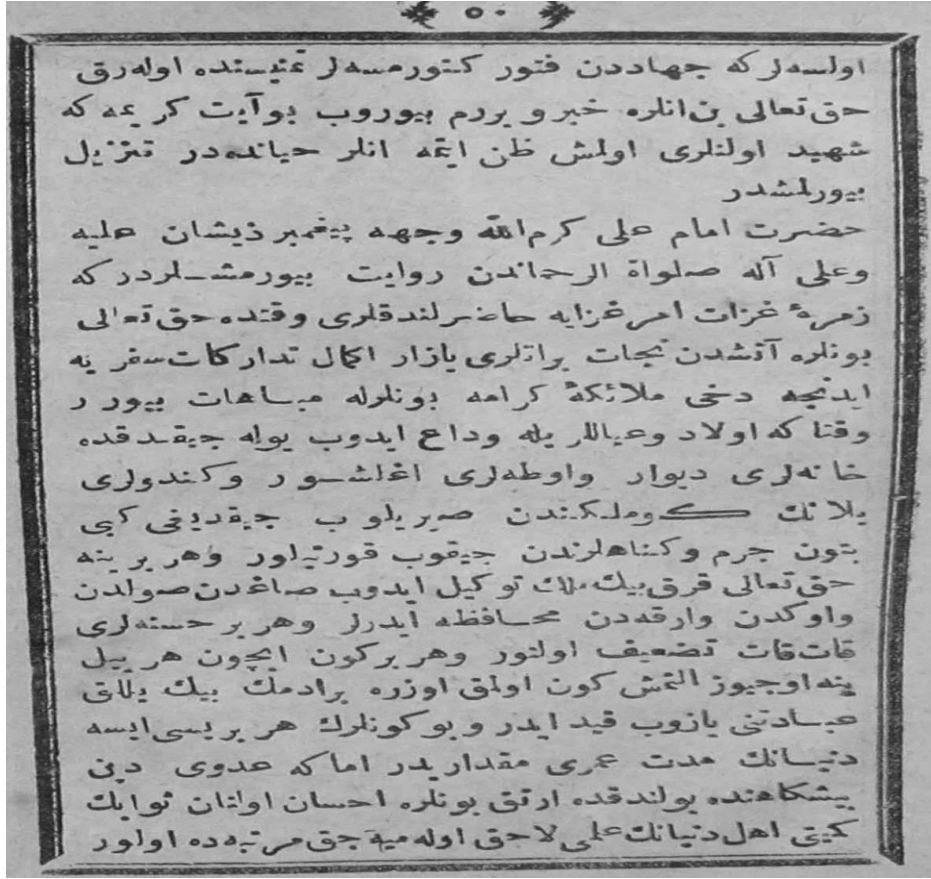 ٥٠
اولسه‌لر كه جهاددن فتور كتورمسه‌لر تمنیسنده اوله‌رق
حق تعالی بن انلره خبر ویردم بیوروب بوآیت كریمه كه
شهید اولنلری اولمش ظن ایتمه انلر حیاتده‌در تنزیل
بیورلمشدر
حضرت امام علی كرم الله وجهه پیغمبر ذیشان علیه
وعلی آله صلواة الرحماندن روایت بیورمشـلردر كه
زمرۀ غزات امر غزایه حاضرلندقلری وقتده حق تعالی
بونلره آتشدن نجات براتلری یازار اكمال تداركات سفریه
ایدنجه دخی ملائكۀ كرامه بونلرله مباهات بیورر
وقتا كه اولاد وعیاللریله وداع ایدوب یوله چیقدقده
خانه‌لری دیوار واوطه‌لری اغلشور وكندولری
یلانك كوملكندن صیریلوب چیقدیغی كبی
بتون جرم وكناهلرندن چیقوب قورتیلور وهر برینه
حق تعالی قرق بیك ملك توكیل ایدوب صاغدن صولدن
واوكدن وارقه‌دن محافظه ایدرلر وهر بر حسنه‌لری
قات قات تضعیف اولنور وهر بركون ایچون هر ییل
ینه اوچیوز التمش كون اولمق اوزره برادمك بیك ییللق
عبادتنی یازوب قید ایدر وبو كونلرك هر بریسی ایسه
دنیانك مدت عمری مقداریدر اما كه عدوی دین
پیشكاهنده بولندقده ارتق بونلره احسان اولنان ثوابك
كمیتی اهل دنیانك علمی لاحق اوله‌میه‌جق مرتبه‌ده اولور